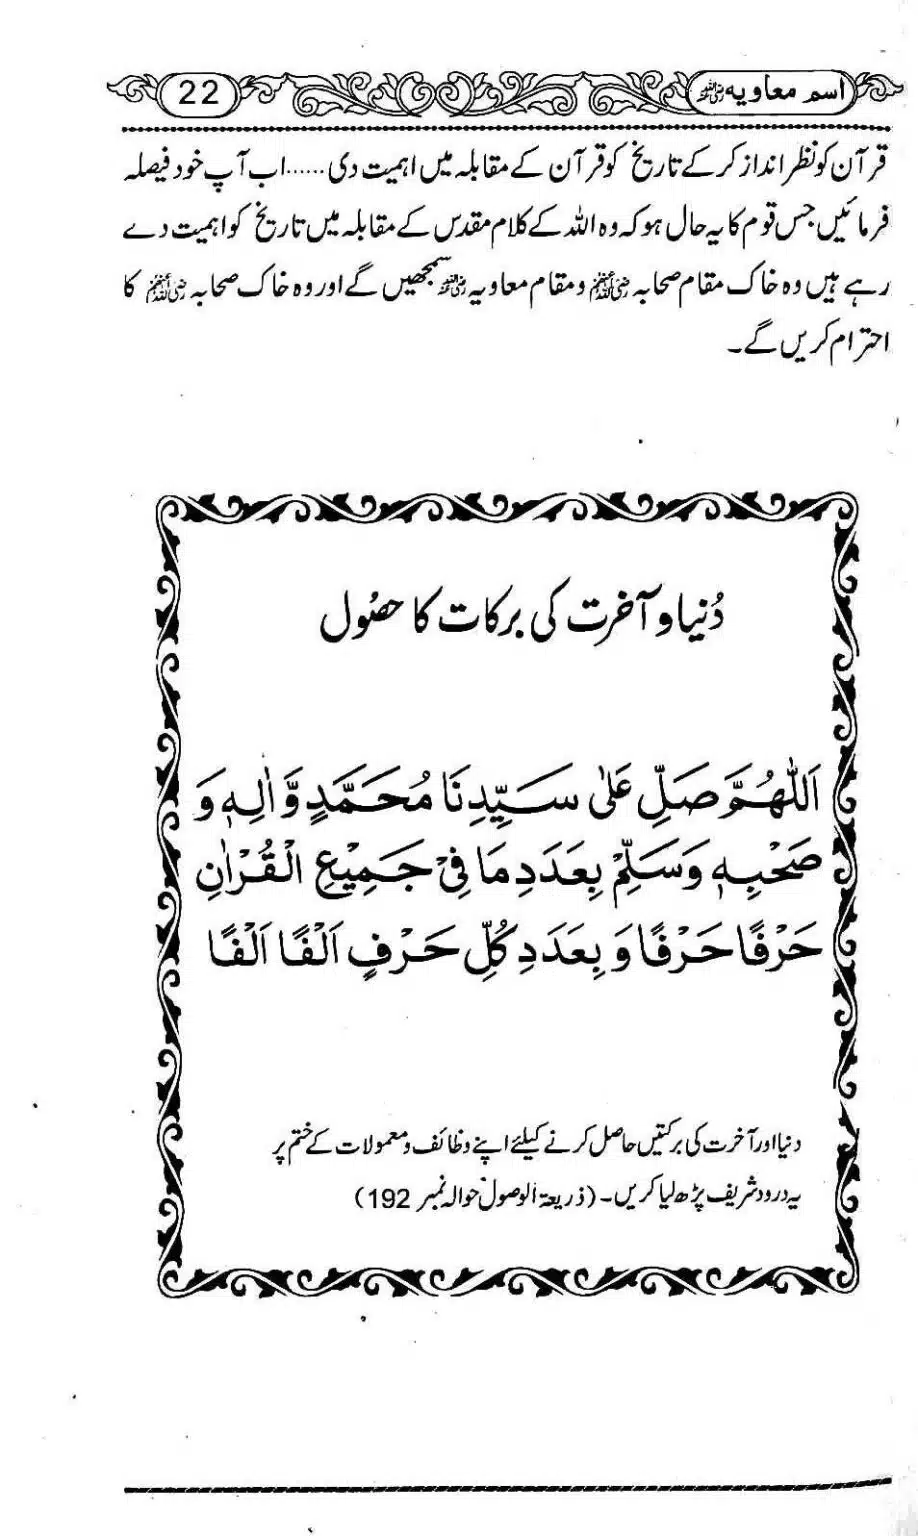 اسم معاویہ ؓ
22
قرآن کو نظر انداز کر کے تاریخ کو قرآن کے مقابلہ میں اہمیت دی......اب آپ خود فیصلہ
فرمائیں جس قوم کا یہ حال ہو کہ وہ اللہ کے کلام مقدس کے مقابلہ میں تاریخ کو اہمیت دے
رہے ہیں وہ خاک مقام صحابہ ؓ و مقام معاویہ ؓ سمجھیں گے اور وہ خاک صحابہ ؓ کا
احترام کریں گے۔
دُنیا و آخرت کی برکات کا حصُول
اَللّٰهُمَّ صَلِّ عَلٰى سَيِّدِنَا مُحَمَّدٍ وَّاٰلِهٖ وَ
صَحْبِهٖ وَسَلِّمْ بِعَدَدِ مَا فِيْ جَمِيْعِ الْقُرْاٰنِ
حَرْفًا حَرْفًا وَ بِعَدَدِ كُلِّ حَرْفٍ اَلْفًا اَلْفًا
دنیا اور آخرت کی برکتیں حاصل کرنے کیلئے اپنے وظائف و معمولات کے ختم پر
یہ درود شریف پڑھ لیا کریں۔ (ذریعۃ الوصول حوالہ نمبر 192)